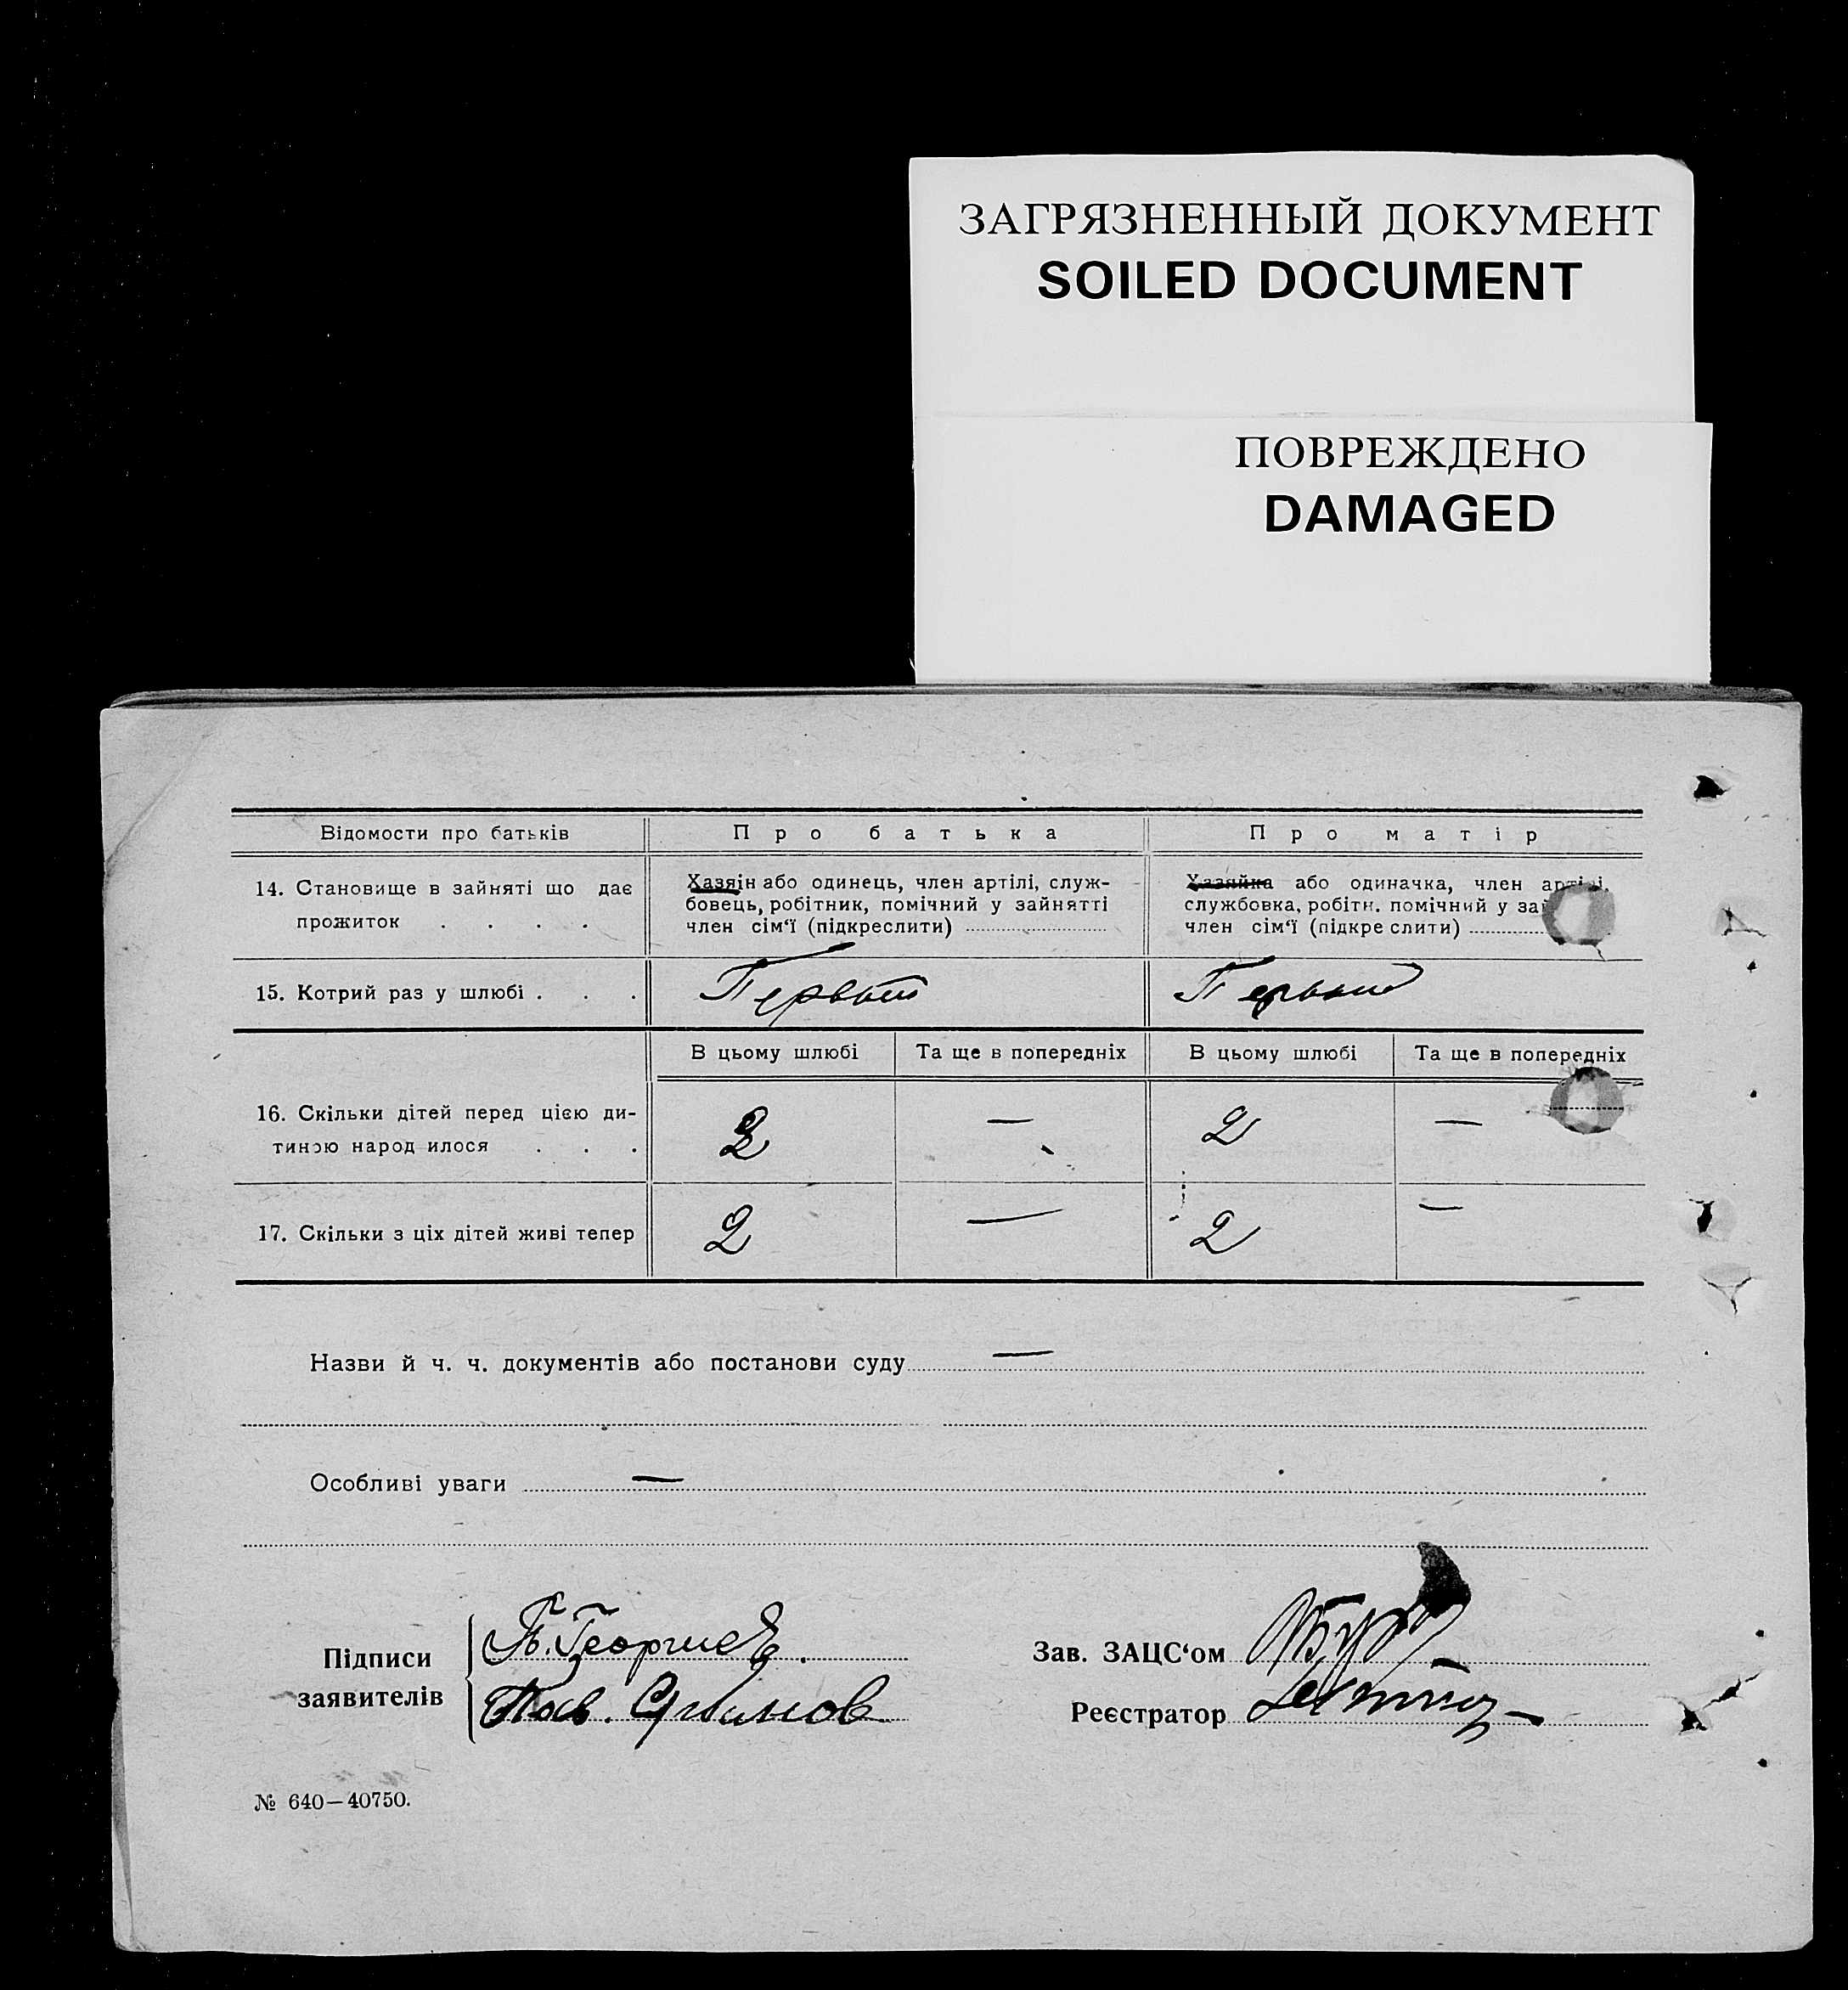 ЗАГРЯЗНЕННЫЙ ДОКУМЕНТ
SOILED DOCUMENT
ПОВРЕЖДЕНО
DAMAGED
Відомости про батьків Про батька Про матір
14. Становище в зайняті що дає прожиток . . . .
Хазяїн або одинець, член артілі, служ-
бовець, робітник, помічний у зайнятті
член сім‘ї (підкреслити)
Хазяйка або одиначка, член артілі,
службовка, робітн. помічний у за
член сім‘ї (підкреслити)
15. Котрий раз у шлюбі . . . Первый Первый
В цьому шлюбі Та ще в попередніх В цьому шлюбі Та ще в попередніх
16. Скільки дітей перед цією ди-
тиною народилося . . . 2 — 2 —
17. Скільки з ціх дітей живі тепер 2 — 2 —
Назви й ч. ч. документів або постанови суду —
Особливі уваги —
Підписи
заявителів
П. Георгиев
Зав. ЗАЦС‘ом
Реєстратор
№ 640—40750.